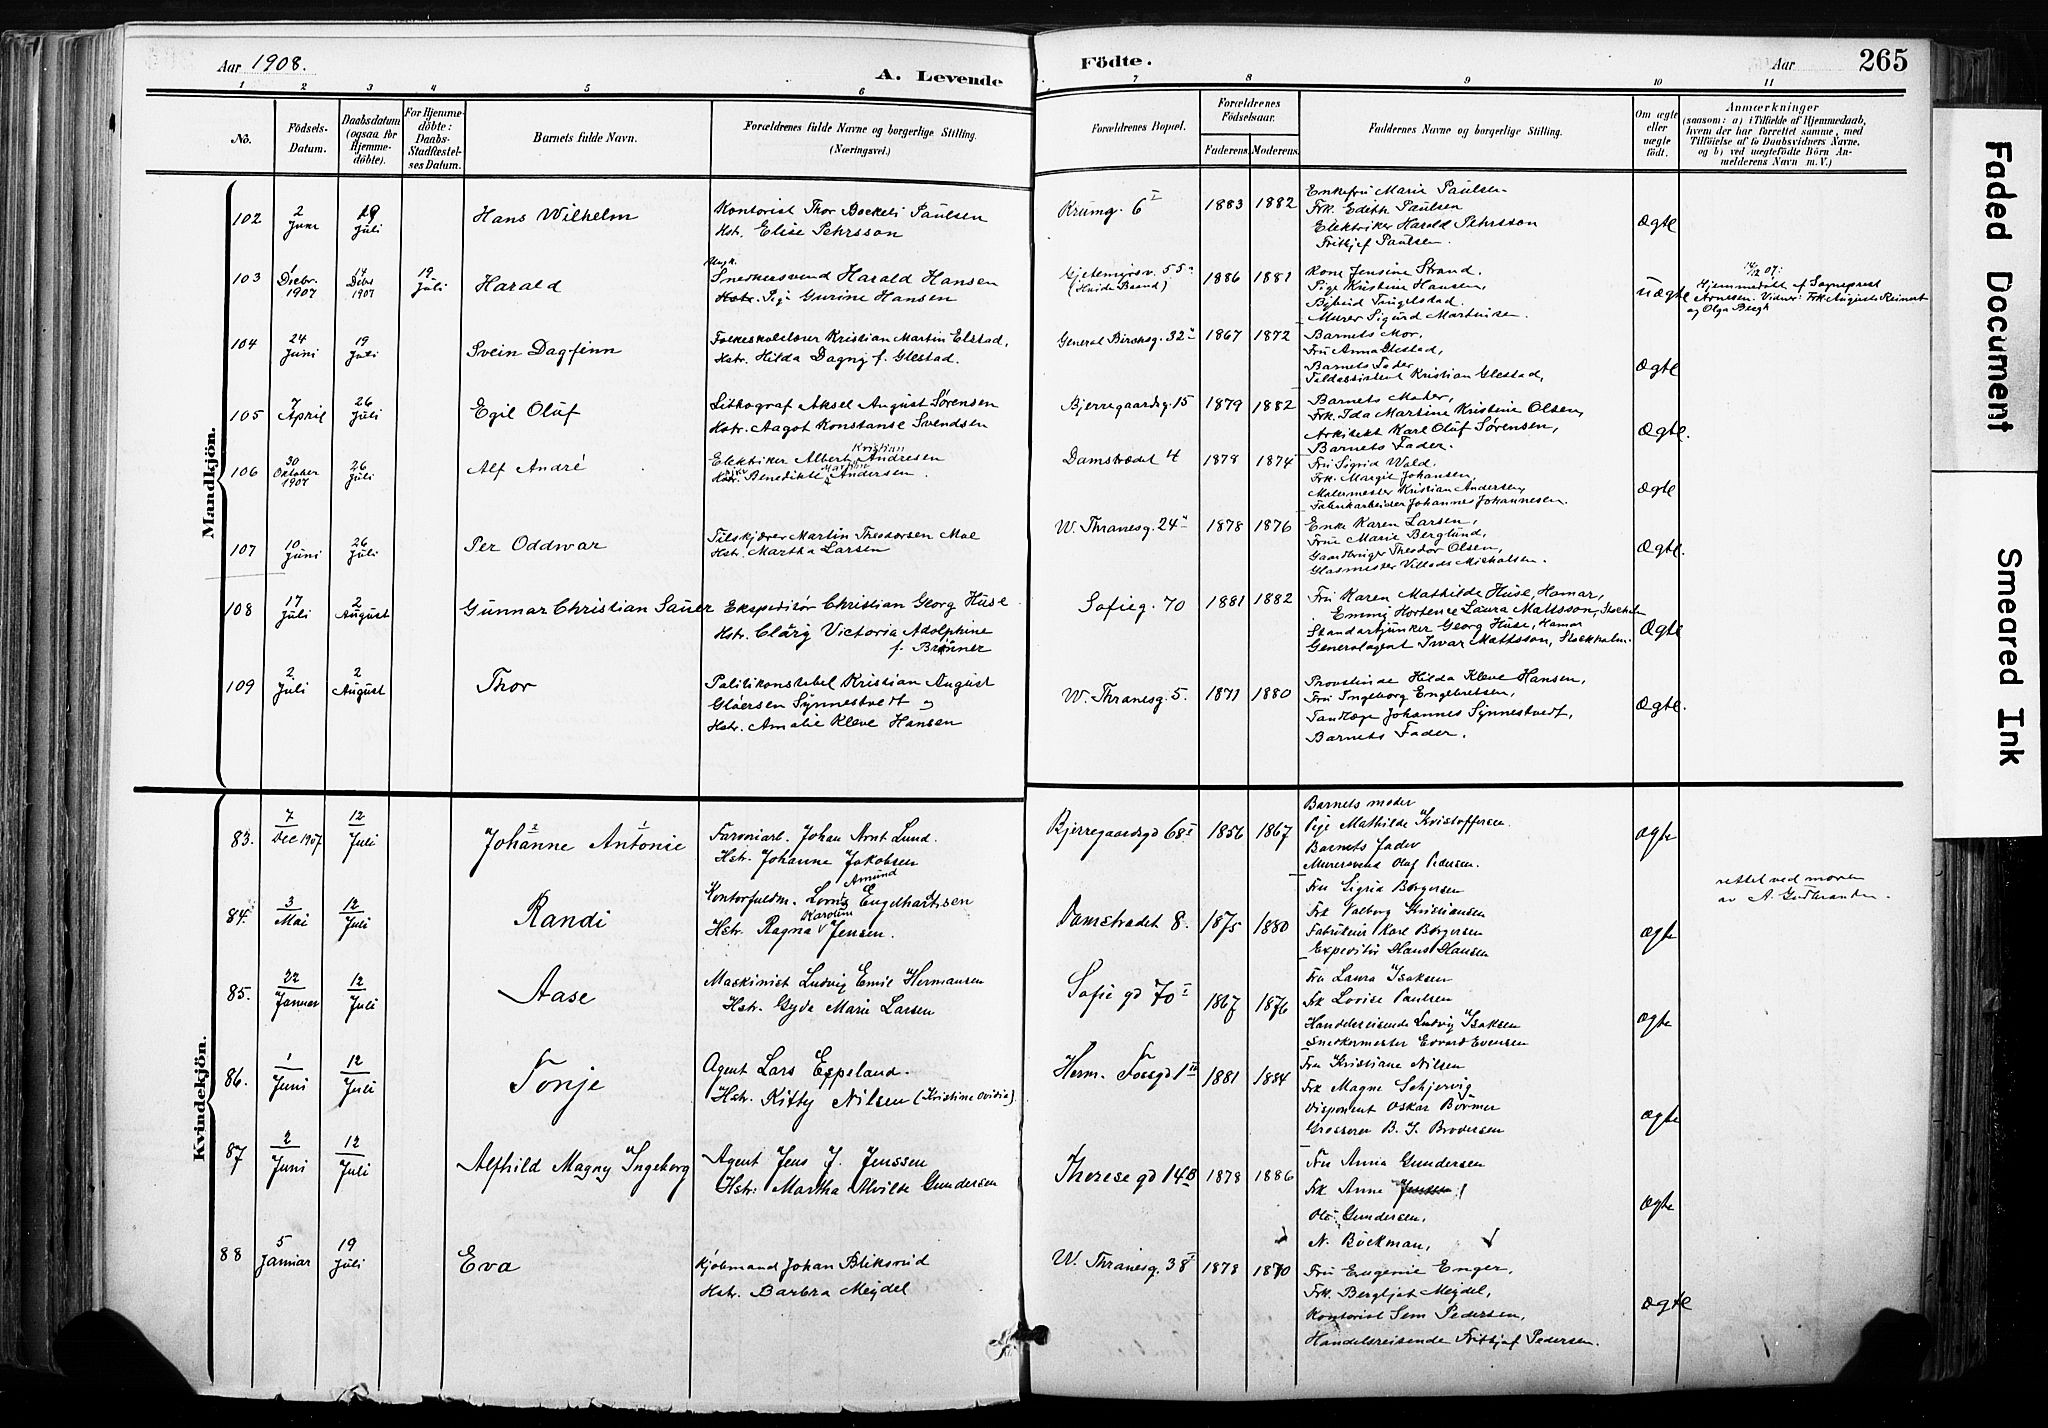 Aar 1908.
A. Levende
Födte.
Aar
265
1 2 3 4 5 6 7 8 9 10 11
No.
Födsels-
Datum.
Daabsdatum
(ogsaa for
Hjemme-
döbte).
For Hjemme-
döbte:
Daabs-
Stadfæstel-
ses Datum.
Barnets fulde Navn.
Forældrenes fulde Navne og borgerlige Stilling.
(Næringsvei.)
Forældrenes Bopæl.
Forældrenes
Födselsaar.
Faderens. Moderens.
Faddernes Navne og borgerlige Stilling.
Om ægte
eller
uægte
födt.
Anmærkninger
(saasom: a) i Tilfælde af Hjemmedaab,
hvem der har forrettet samme, med
Tilföielse af to Daabsvidners Navne,
og b) ved uægtefödte Börn An-
melderens Navn m. V.)
Mandkjön.
102
2
Juni
19
Juli
Hans Wilhelm
Kontorist Thor Bockeli Paulsen
Hstr. Elise Pehrsson
Krumg. 6 I
1883 1882
Enkefru Marie Paulsen
Frk. Edith Paulsen
Elektriker Harald Pehrsson
Fritjof Paulsen.
Ægte
103
1
Decbr.
1907
14
Decbr
1907
19
Juli
Harald
Ungk.
Snedkersvend Harald Hansen
Pige Gurine Hansen
Gjetemyrsv. 55
1886 1881
Kone Jensine Strand.
Pige Kristine Hansen,
Murer Sigurd Martinsen.
Uægte
14/12 07.
Hjemmedøbt af Sogneprest
Arnesen. Vidner: Frk Augusta Reimert
og Olga Bergh
104
24
Juni
19
Juli
Svein Dagfinn
Folkeskolelærer Kristian Martin Elstad,
Hstr. Hilda Dagny f. Glestad.
General Birchsg. 32
1867 1872
Barnets Mor,
Fru Anna Glestad,
Barnets Fader,
Toldassistent Kristian Glestad,
Ægte
105
7
April
26
Juli
Egil Oluf
Lithograf Aksel August Sørensen
Hstr. Aagot Konstanse Svendsen
Bjerregaardsg. 15
1879 1882
Barnets Moder,
Frk. Ida Martine Kristine Olsen,
Arkitekt Karl Oluf Sørensen,
Barnets Fader.
Ægte.
106
30
Oktober
1907
26
Juli
Alf André
Kristian
Elektriker Albert Andresen
Hstr. Benedikte Andersen.
Damstrædet 4
1878 1874
Fru Sigrid Wold.
Frk. Margit Johansen,
Malermester Kristian Andersen,
Fabrikarbeider Johannes Johannesen.
Ægte
107
10
Juni
26
Juli
Per Oddvar
Tilskjærer Martin Theodorsen Moe
Hstr. Martha Larsen
W. Thranesg. 24
1878 1876
Enke Karen Larsen,
Frue Marie Berglund,
Gaardbruger Theodor Olsen,
Glasmester Villads Michalsen.
Ægte.
108
17
Juli
2
August
Gunnar Christian Sauer
Ekspeditør Christian Georg Huse
Hstr. Cläry Victoria Adolphine
f. Brünner
Sofieg. 70
1881 1882
Fru Karen Mathilde Huse, Hamar,
Emmy Hortense Laura Mattsson, Stockholm
Standartjunker Georg Huse, Hamar
Generalagent Ivar Mattsson, Stockholm.
Ægte
109
2
Juli
2
August
Thor
Politikonstabel Kristian August
Gløersen Synnestvedt og
Hstr. Amalie Kleve Hansen
W. Thranesg. 5.
1871 1880
Provstinde Hilda Kleve Hansen,
Fru Ingeborg Engebretsen,
Tandlæge Johannes Synnestvedt,
Barnets Fader.
Ægte.
Kvindekjön.
83.
7
Dec 1907
12
Juli
2 1
Johanne Antonie
Farveriarb. Johan Arnt Lund.
Hstr. Johanne Jakobsen
Bjerregaardsgd 68 I
1856 1867
Barnets moder
Pige Mathilde Kristoffersen.
Barnets fader
Murersvend Olaf Pedersen.
ægte
84.
3
Mai
12
Juli
Randi
Amund
Kontorfuldm. Engelhartsen
Karoline
Hstr. Ragna Jensen.
Damstrædet 8.
1875 1880
Fru Sigrid Borgersen
Frk Valborg Kristiansen
Fabrikeier Karl Borgersen
Expeditør Hans Hansen
ægte
rettet ved moren
av A. Gudbrandsen.
85.
22
Januar
12
Juli
Aase
Maskinist Ludvig Emil Hermansen
Hstr. Gyda Marie Larsen
Sofie gd 70 I
1867 1876
Fru Laura Isaksen
Frk Lovise Paulsen
Handelsreisende Ludvig Isaksen
Snedkermester Edvard Evensen
ægte
86.
1
Juni
12
Juli
Tonje
Agent Lars Espeland.
Hstr. Kitty Nilsen (Kristine Ovidia)
Herm. Fossgd 1 III
1881 1884
Fru Kristiane Nilsen
Frk Magne Schjervig
Disponent Oskar Børmer
Grosserer B. I. Brodersen
ægte
87
2
Juni
12
Juli
Alfhild Magny Ingeborg
Agent Jens J. Jenssen
Hstr. Martha Alvilde Gundersen
Therese gd 14B
1878 1886
Fru Anna Gundersen
Frk Anne Jenssen
Ole Gundersen,
N. Böckman,
ægte
88
5
Januar
19
Juli
Eva
Kjøbmand Johan Bliksrud
Hstr. Barbra Mejdel
W. Thranesg. 38 I
1878 1870
Fru Eugenie Enger,
Frk. Bergljot Mejdel,
Kontorist Sem Pedersen,
Handelsreisende Fritjof Pedersen.
Ægte
Faded Document
Smeared Ink